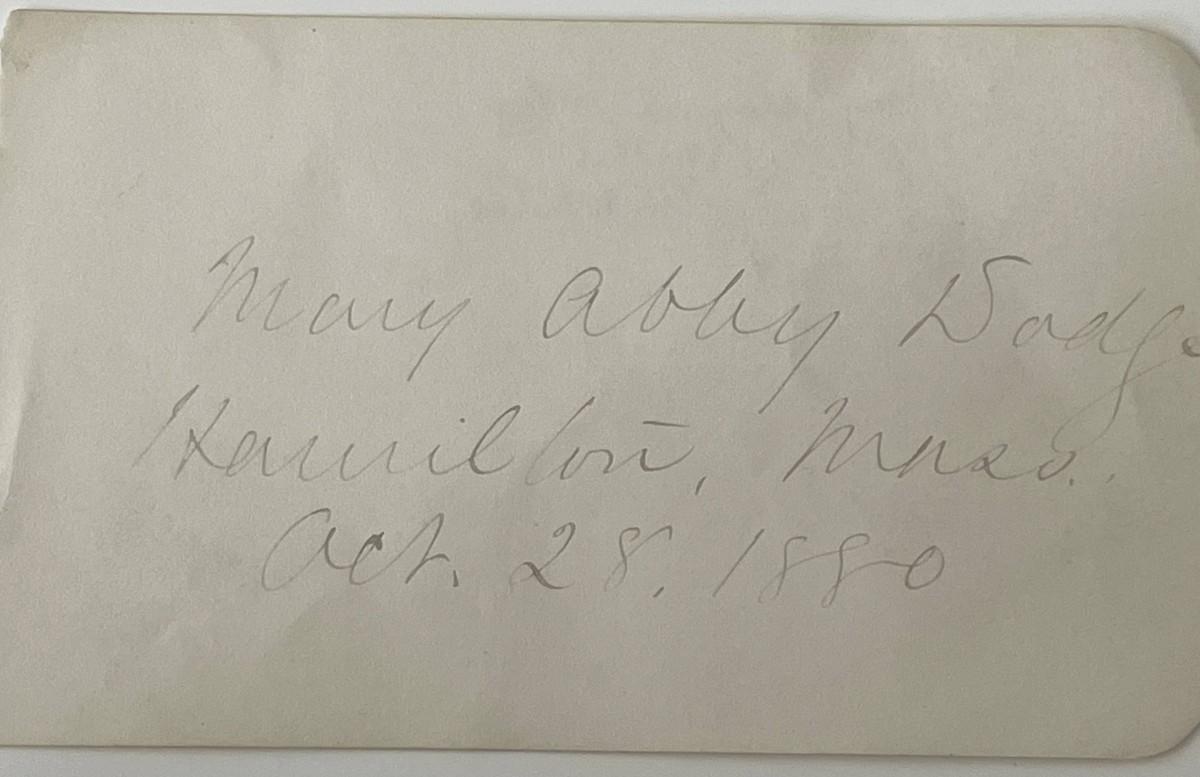 Mary Abby Dodge
Hamilton, Mass.
Oct. 28, 1880